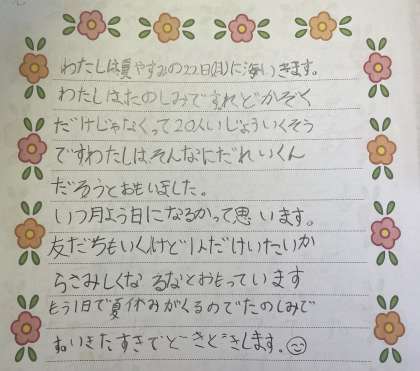 わたしは夏やすみの22日(月)に海いきます。
わたしはたのしみですけれどかぞく
だけじゃなくって20人いじょういくそう
ですわたしは、そんなにだれいくん
だろうとおもいました。
いつ月よう日になるかって思います。
友だちもいくけど1人だけいたいか
らさみしくなるなとおもっています
もう1日で夏休みがくるのでたのしみで
すいきたすぎでどきどきします。